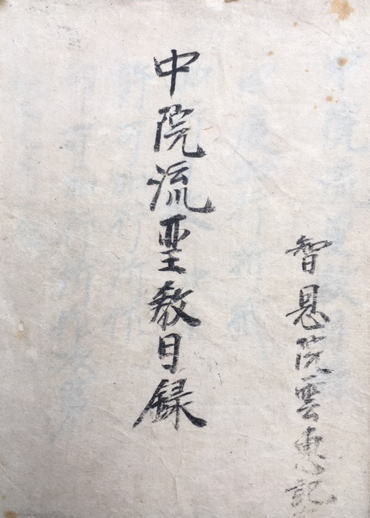 智恩院雲恵記
中院流聖教目録